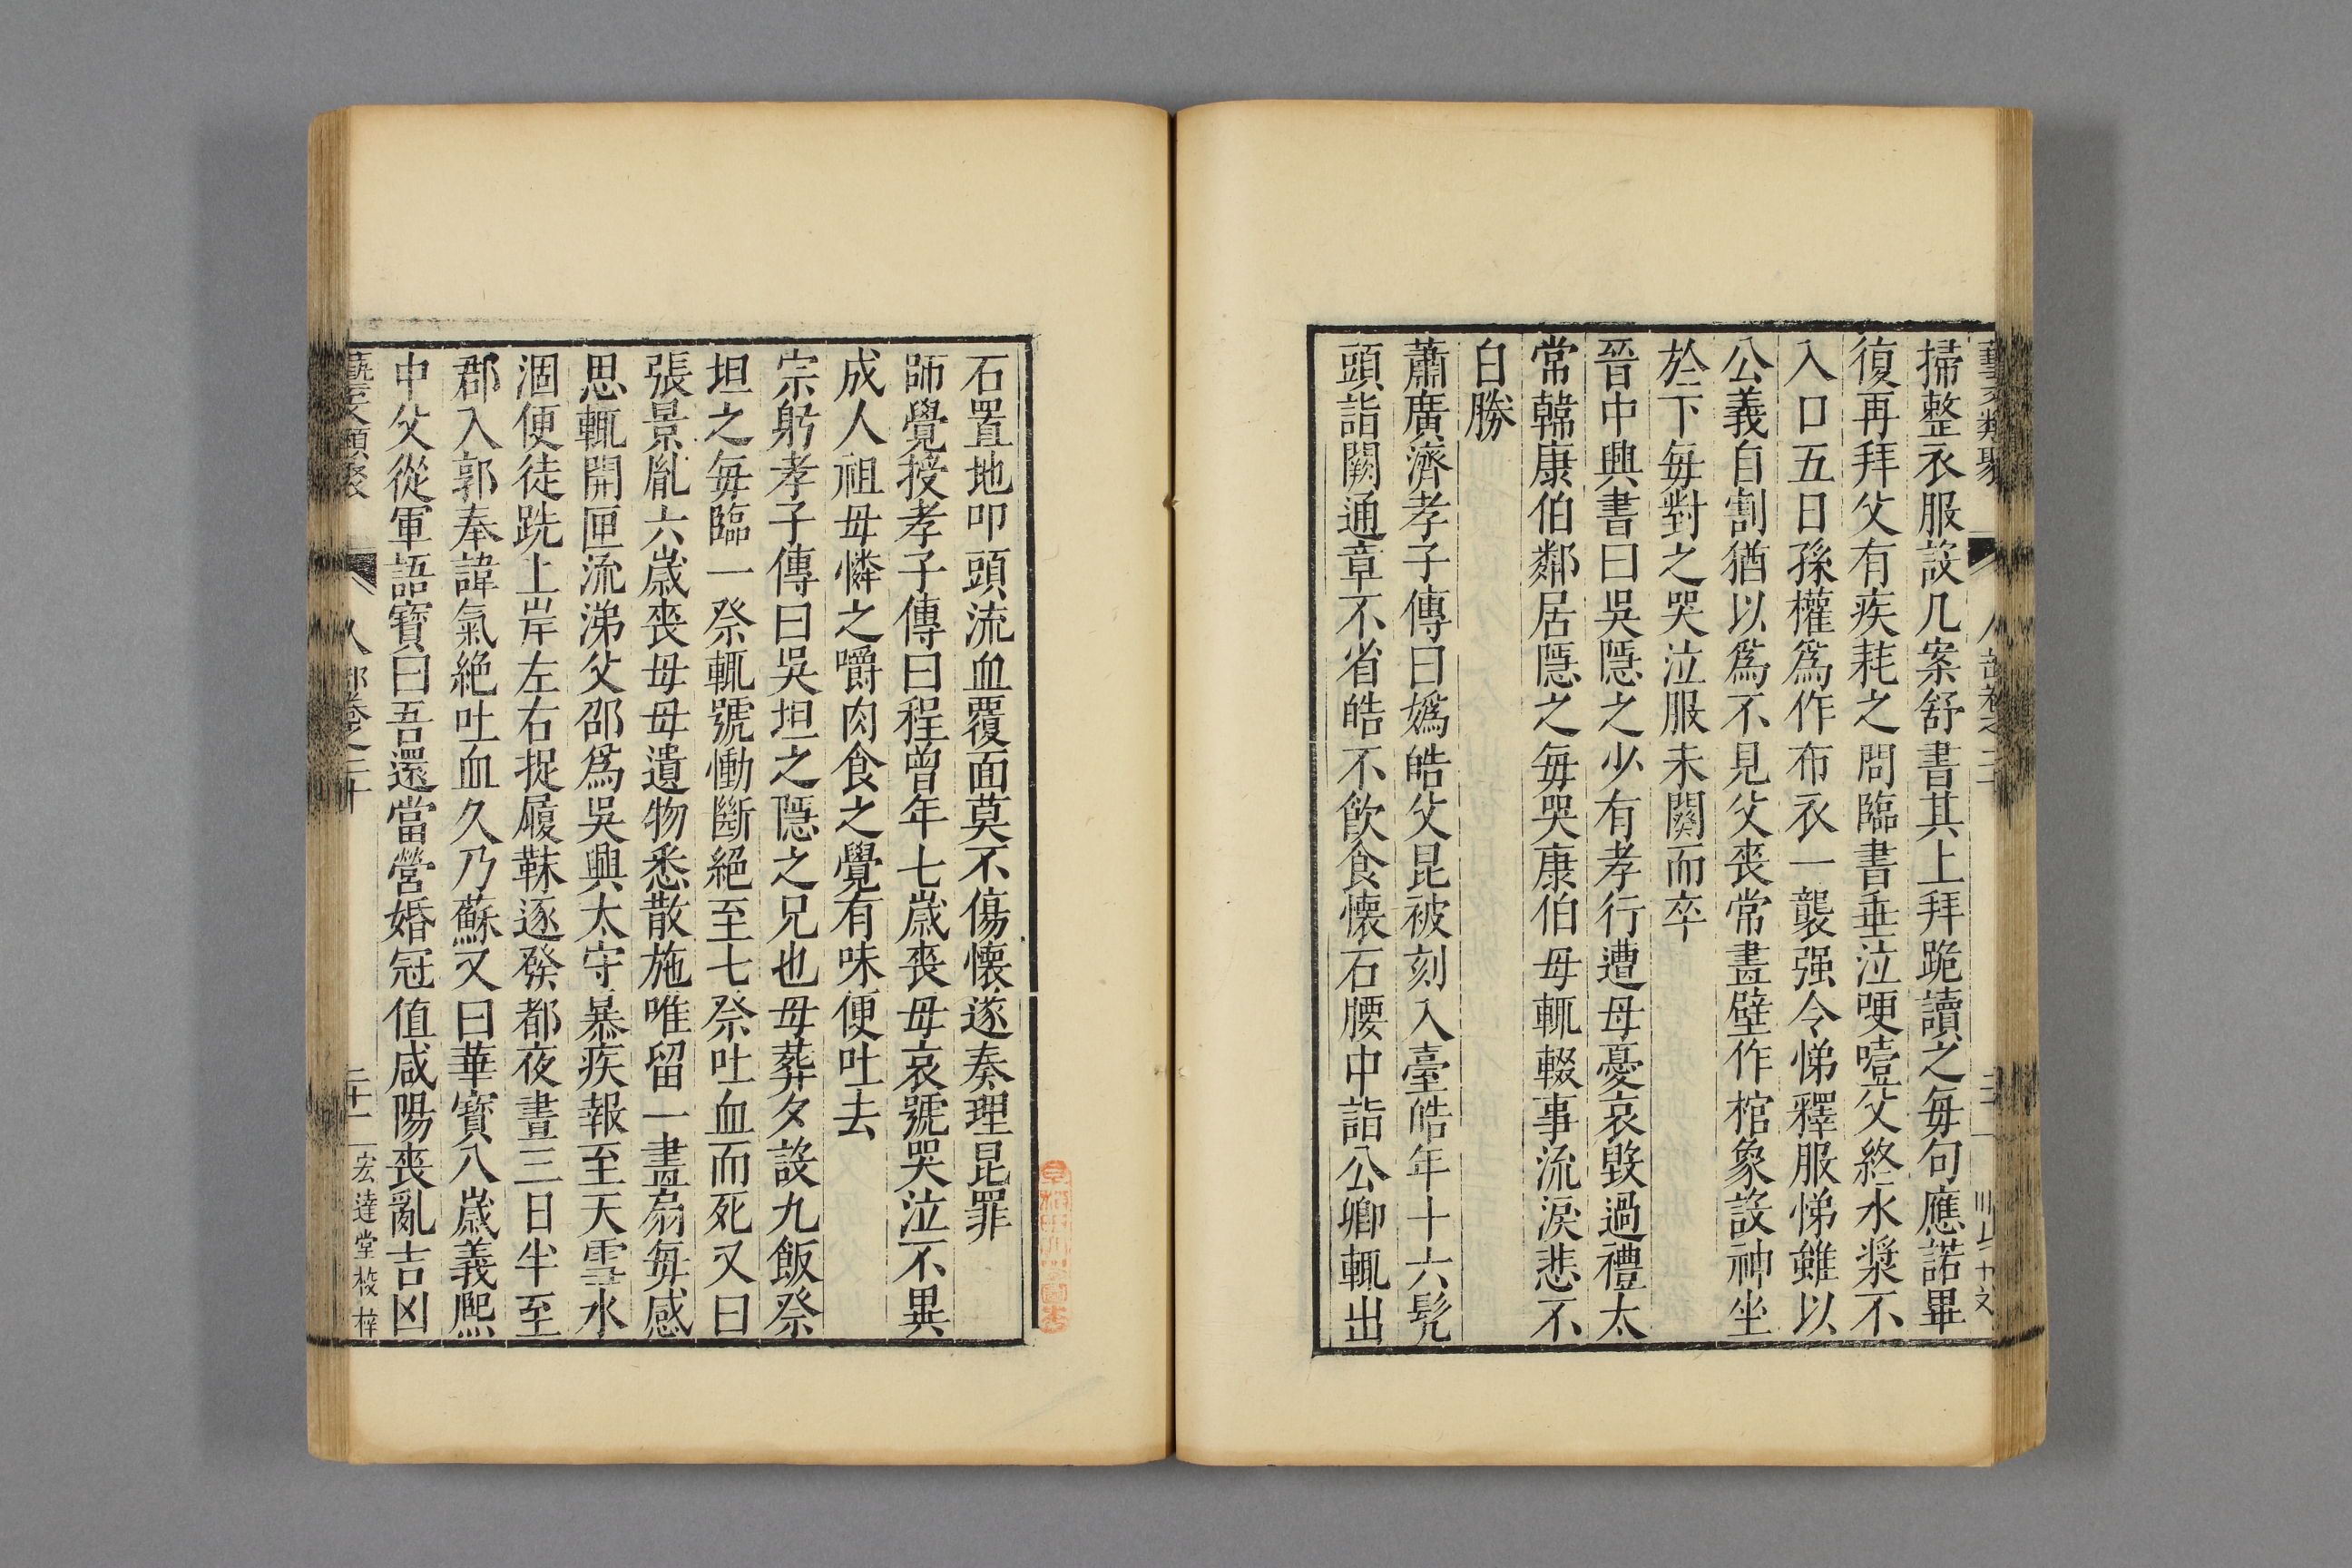 掃整衣服設几案舒書其上拜跪讀之每句應諾畢
復再拜父有疾耗之問臨書垂泣哽噎父終水漿不
入口五日孫權爲作布衣一襲强令悌釋服悌雖以
公義自割猶以爲不見父喪常畫壁作棺象設神坐
於下每對之哭泣服未闋而卒
晉中興書曰吳隱之少有孝行遭母憂哀毀過禮太
常韓康伯鄰居隱之每哭康伯母輒輟事流淚悲不
自勝
蕭廣濟孝子傳曰嬀皓父昆被刻入臺皓年十六髡
頭詣闕通章不省皓不飲食懷石腰中詣公卿輒出
石置地叩頭流血覆面莫不傷懷遂奏理昆罪
師覺授孝子傳曰程曾年七歲喪母哀號哭泣不異
成人祖母憐之嚼肉食之覺有味便吐去
宗躬孝子傳曰吳坦之隱之兄也母葬夕設九飯祭
坦之每臨一祭輒號慟斷絕至七祭吐血而死又曰
張景胤六歲喪母母遺物悉散施唯留一畫扇每感
思輒開匣流涕父邵爲吳興太守暴疾報至天雪水
涸便徒跣上岸左右捉履韈逐發都夜晝三日半至
郡入郭奉諱氣絕吐血久乃蘇又曰華寶八歲義熙
中父從軍語寶曰吾還當營婚冠值咸陽喪亂吉凶
藝文類聚 人部卷之二十 二十二 宏達堂校梓